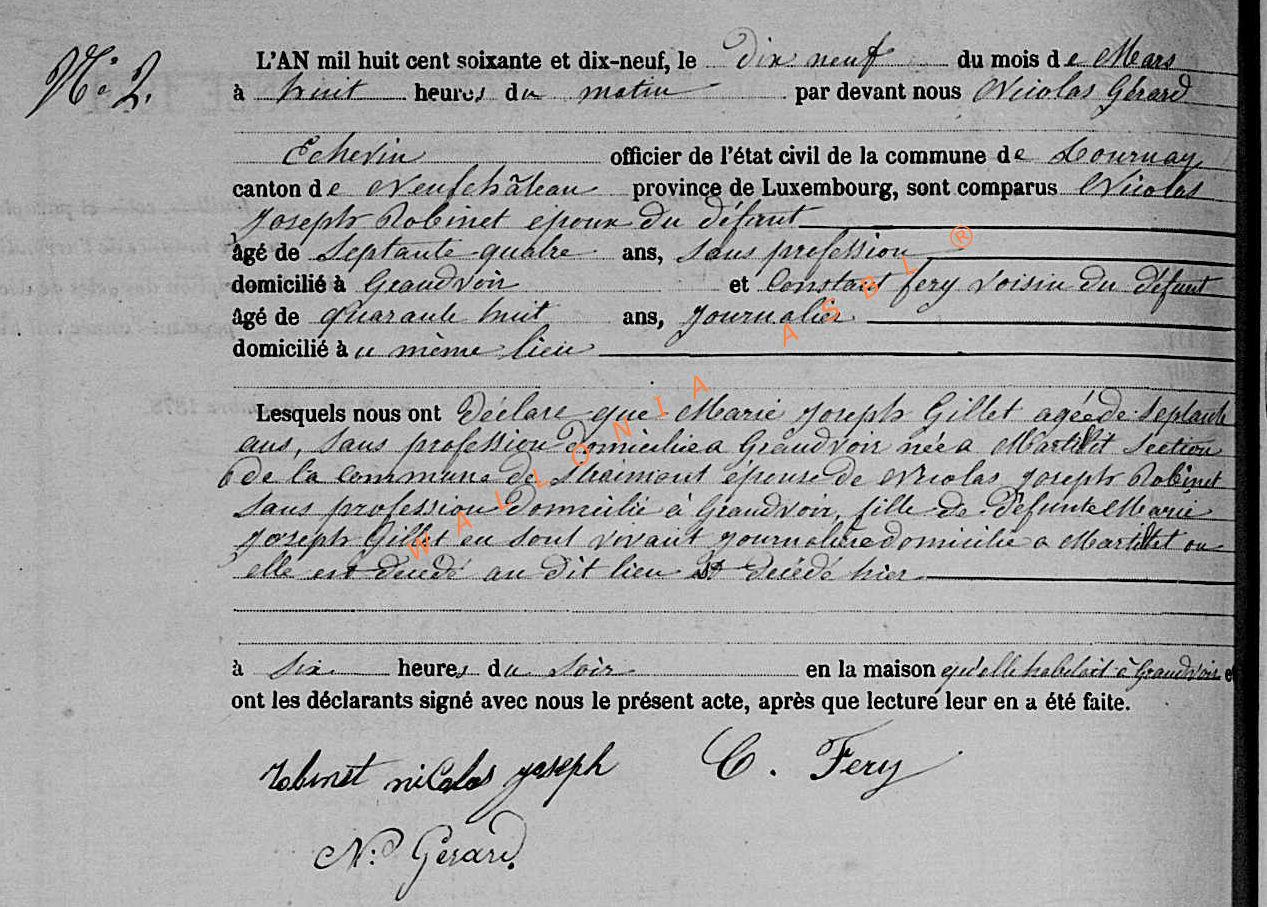 N° 2.
L'AN mil huit cent soixante et dix-neuf, le dix neuf du mois de Mars
à huit heures du matin par devant nous Nicolas Gérard
Echevin officier de l'état civil de la commune de Tournay
canton de Neufchâteau province de Luxembourg, sont comparus Nicolas
Joseph Robinet époux du défunt
âgé de septante quatre ans, sans profession
domicilié à Grandvoir et Constant fery voisin du défunt
âgé de quarante huit ans, Journalier
domicilié au même lieu
Lesquels nous ont Déclaré que Marie Joseph Gillet agée de septante
ans, sans profession domiciliée a Grandvoir née a Martilet section
de la commune de Straimont épouse de Nicolas Joseph Robinet
sans profession Domicilié à Grandvoir, fille de Défunte Marie
Joseph Gillet en sont vivant journalière domicilié a Martilet ou
elle est decédé au dit lieu est decédé hier
à six heures du soir en la maison qu'elle habitait à Grandvoir et
ont les déclarants signé avec nous le présent acte, après que lecture leur en a été faite.
robinet nicolas joseph C. Fery
N: Gérard.
WALLONIA ASBL ®